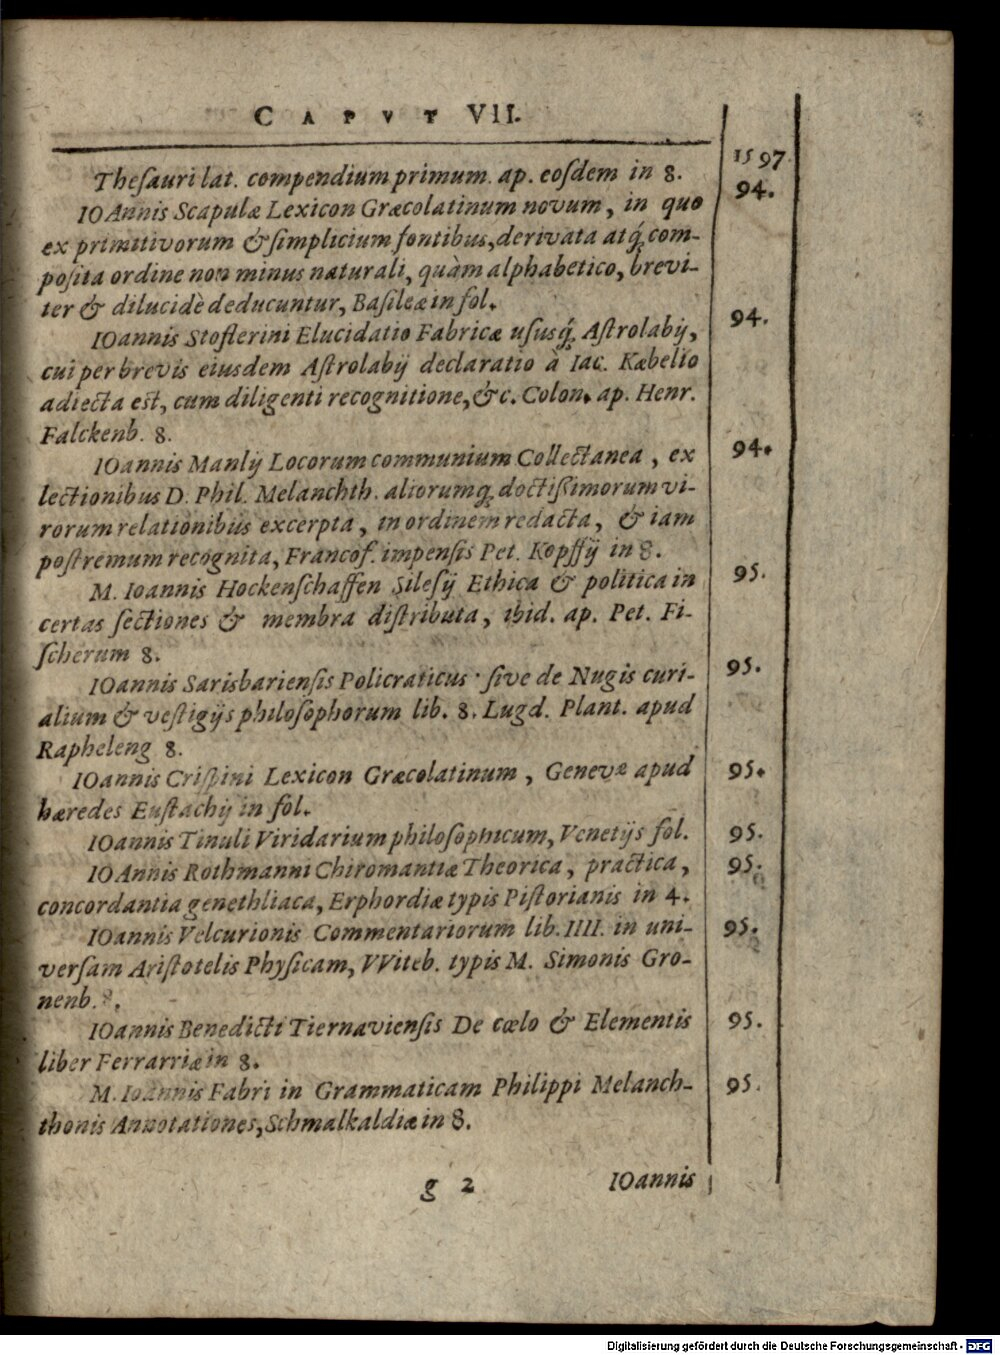 CAPVT VII.
1597
Theſauri lat. compendium primum. ap. eoſdem in 8.
94.
IOAnnis Scapulæ Lexicon Græcolatinum novum, in quo
ex primitivorum & ſimplicium fontibus, derivata atq́; com-
poſita ordine non minus naturali, quàm alphabetico, brevi-
ter & dilucidè deducuntur, Baſileæ in fol.
94.
IOannis Stoflerini Elucidatio Fabricæ uſusq́; Aſtrolabij,
cui per brevis eiusdem Aſtrolabij declaratio à Iac. Kæbelio
adiecta est, cum diligenti recognitione, &c. Colon. ap. Henr.
Falckenb. 8.
94.
IOannis Manlij Locorum communium Collectanea, ex
lectionibus D. Phil. Melanchth. aliorumq; doctißimorum vi-
rorum relationibus excerpta, in ordinem redacta, & iam
poſtremum recognita, Francof. impenſis Pet. Kopffij in 8.
95.
M. Ioannis Hockenſchaffen Sileſij Ethica & politica in
certas ſectiones & membra diſtributa, ibid. ap. Pet. Fi-
ſcherum 8.
95.
IOannis Sarisbarienſis Policraticus · ſive de Nugis curi-
alium & veſtigijs philoſophorum lib. 8. Lugd. Plant. apud
Rapheleng 8.
95.
IOannis Criſpini Lexicon Græcolatinum, Genevæ apud
hæredes Euſtachij in fol.
95.
IOannis Tinuli Viridarium philoſophicum, Venetijs fol.
95.
IOAnnis Rothmanni Chiromantiæ Theorica, practica,
concordantia genethliaca, Erphordiæ typis Piſtorianis in 4.
95.
IOannis Velcurionis Commentariorum lib. IIII. in uni-
verſam Ariſtotelis Phyſicam, VViteb. typis M. Simonis Gro-
nenb. 8.
95.
IOannis Benedicti Tiernavienſis De cœlo & Elementis
liber Ferrarriæ in 8.
95.
M. Ioannis Fabri in Grammaticam Philippi Melanch-
thonis Annotationes, Schmalkaldiæ in 8.
g 2
IOannis
Digitalisierung gefördert durch die Deutsche Forschungsgemeinschaft - DFG